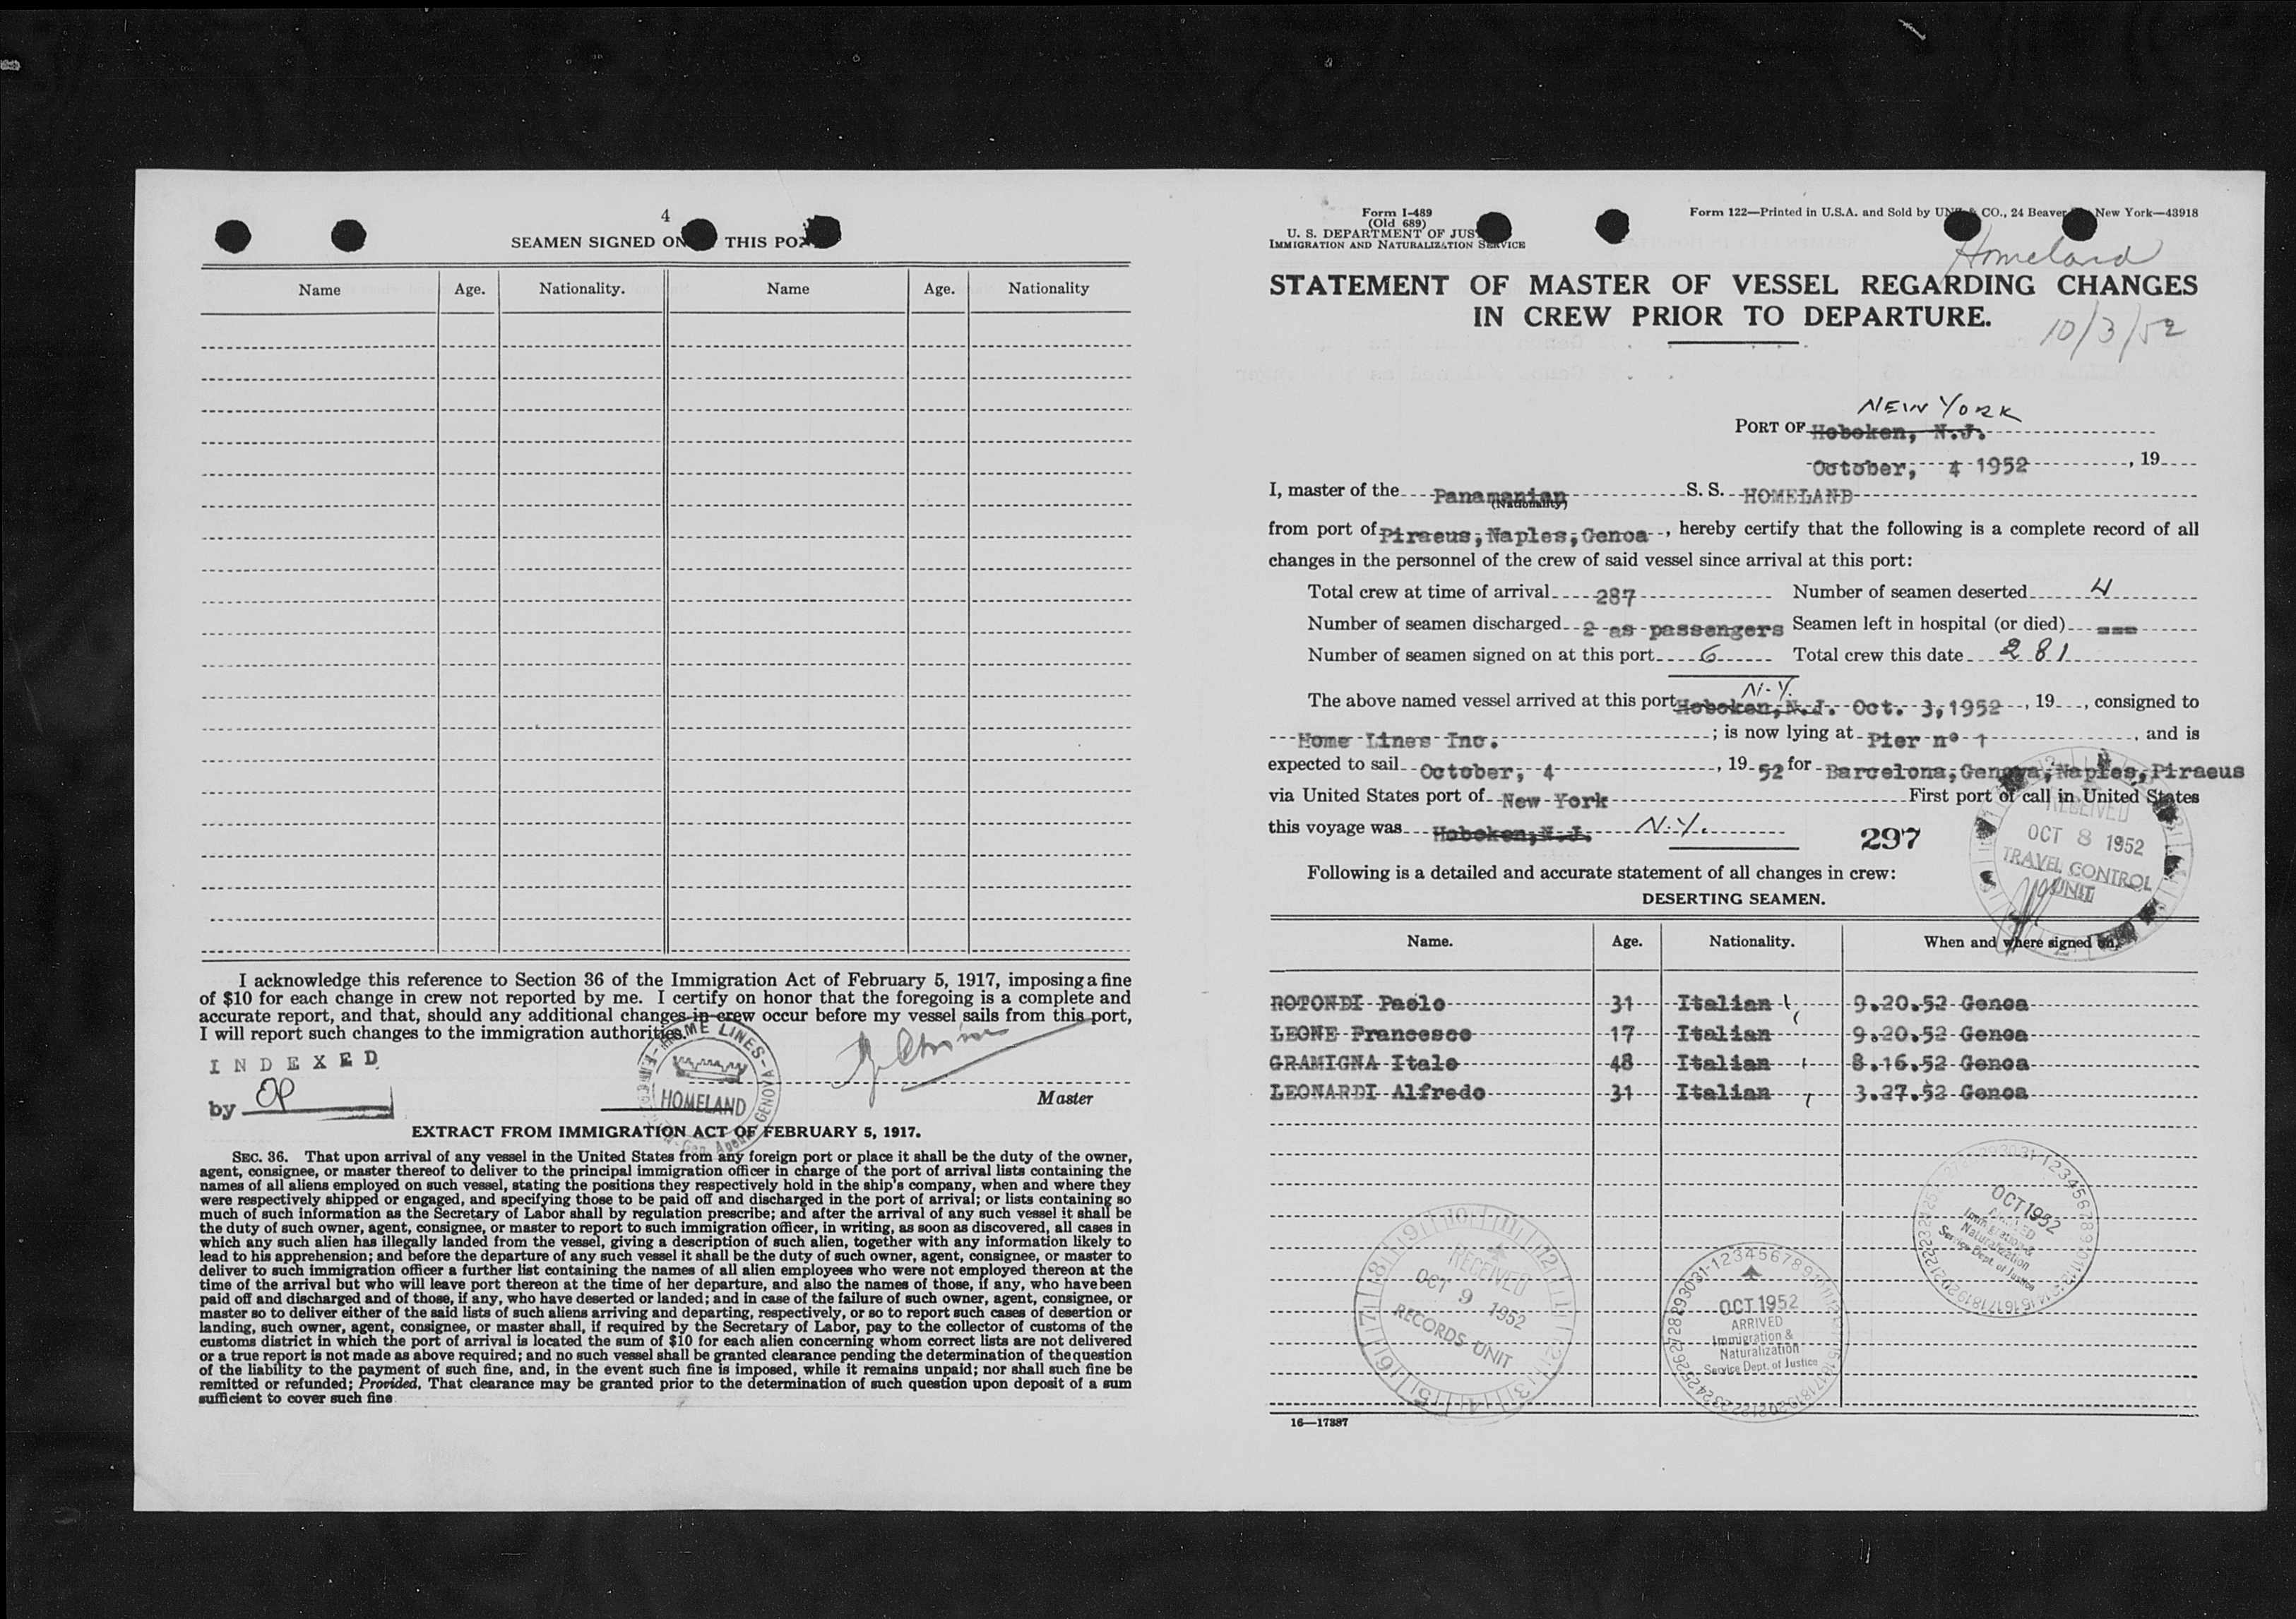 4
SEAMEN SIGNED ON THIS PO
Name Age. Nationality. Name Age. Nationality
I acknowledge this reference to Section 36 of the Immigration Act of February 5, 1917, imposing a fine
of $10 for each change in crew not reported by me. I certify on honor that the foregoing is a complete and
accurate report, and that, should any additional changes in crew occur before my vessel sails from this port,
I will report such changes to the immigration authorities.
INDEXED
by
HOME LINES - GENOVA
HOMELAND
Master
EXTRACT FROM IMMIGRATION ACT OF FEBRUARY 5, 1917.
SEC. 36. That upon arrival of any vessel in the United States from any foreign port or place it shall be the duty of the owner,
agent, consignee, or master thereof to deliver to the principal immigration officer in charge of the port of arrival lists containing the
names of all aliens employed on such vessel, stating the positions they respectively hold in the ship's company, when and where they
were respectively shipped or engaged, and specifying those to be paid off and discharged in the port of arrival; or lists containing so
much of such information as the Secretary of Labor shall by regulation prescribe; and after the arrival of any such vessel it shall be
the duty of such owner, agent, consignee, or master to report to such immigration officer, in writing, as soon as discovered, all cases in
which any such alien has illegally landed from the vessel, giving a description of such alien, together with any information likely to
lead to his apprehension; and before the departure of any such vessel it shall be the duty of such owner, agent, consignee, or master to
deliver to such immigration officer a further list containing the names of all alien employees who were not employed thereon at the
time of the arrival but who will leave port thereon at the time of her departure, and also the names of those, if any, who have been
paid off and discharged and of those, if any, who have deserted or landed; and in case of the failure of such owner, agent, consignee, or
master so to deliver either of the said lists of such aliens arriving and departing, respectively, or so to report such cases of desertion or
landing, such owner, agent, consignee, or master shall, if required by the Secretary of Labor, pay to the collector of customs of the
customs district in which the port of arrival is located the sum of $10 for each alien concerning whom correct lists are not delivered
or a true report is not made as above required; and no such vessel shall be granted clearance pending the determination of the question
of the liability to the payment of such fine, and, in the event such fine is imposed, while it remains unpaid; nor shall such fine be
remitted or refunded; Provided, That clearance may be granted prior to the determination of such question upon deposit of a sum
sufficient to cover such fine
Form I-489
(Old 689)
U. S. DEPARTMENT OF JUS
IMMIGRATION AND NATURALIZATION SERVICE
Form 122—Printed in U.S.A. and Sold by UN & CO., 24 Beaver New York—43918
Homeland
STATEMENT OF MASTER OF VESSEL REGARDING CHANGES
IN CREW PRIOR TO DEPARTURE.
10/3/52
NEW YORK
PORT OF Hoboken, N.J.
October, 4 1952, 19
I, master of the Panamanian S. S. HOMELAND
(Nationality)
from port of Piraeus, Naples, Genoa, hereby certify that the following is a complete record of all
changes in the personnel of the crew of said vessel since arrival at this port:
Total crew at time of arrival 287 Number of seamen deserted 4
Number of seamen discharged 2 as passengers Seamen left in hospital (or died) ===
Number of seamen signed on at this port 6 Total crew this date 281
N.Y.
The above named vessel arrived at this port Hoboken, N.J. Oct. 3, 1952, 19, consigned to
Home Lines Inc. ; is now lying at Pier nº 1, and is
expected to sail October, 4, 19 52 for Barcelona, Genova, Naples, Piraeus
via United States port of New York First port of call in United States
this voyage was Hoboken, N.J. N.Y.
297
RECEIVED
OCT 8 1952
TRAVEL CONTROL
UNIT
Following is a detailed and accurate statement of all changes in crew:
DESERTING SEAMEN.
Name. Age. Nationality. When and where signed on.
ROTONDI Paolo 31 Italian 9.20.52 Genoa
LEONE Francesco 17 Italian 9.20.52 Genoa
GRAMIGNA Italo 48 Italian 8.16.52 Genoa
LEONARDI Alfredo 31 Italian 3.27.52 Genoa
OCT 1952
ARRIVED
Immigration &
Naturalization
Service Dept. of Justice
RECEIVED
OCT 9 1952
RECORDS UNIT
OCT 1952
ARRIVED
Immigration &
Naturalization
Service Dept. of Justice
16—17387